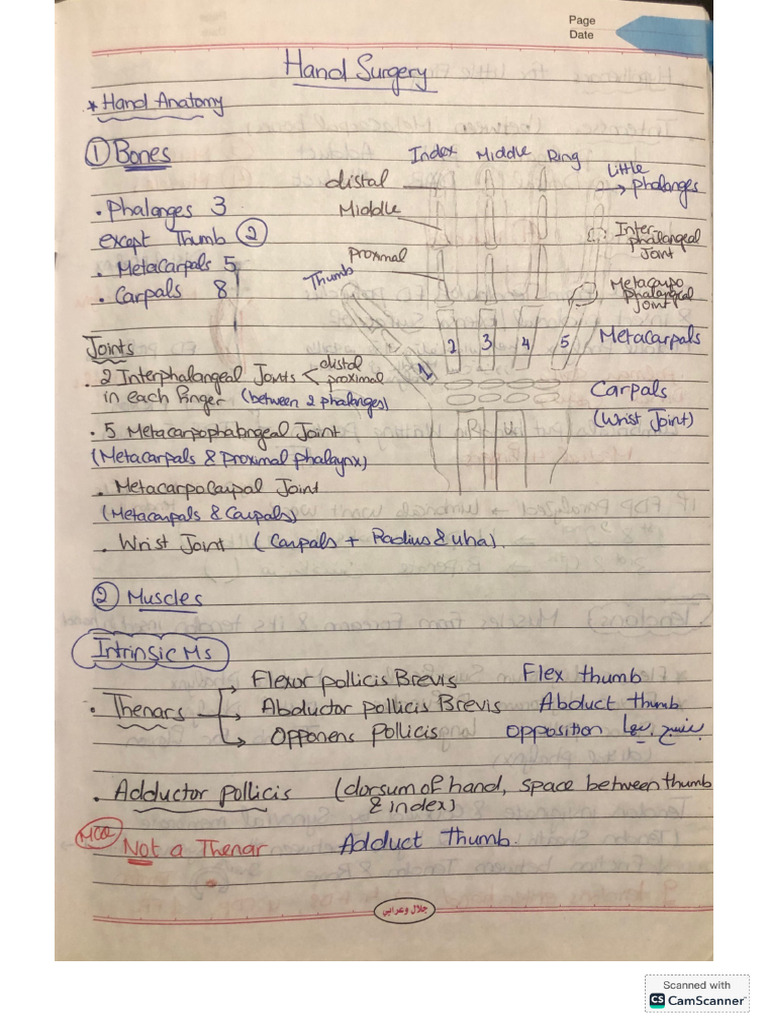 Page
Date
Hand Surgery
* Hand Anatomy
① Bones
Index Middle Ring
Little
distal
2 → phalanges
Middle
• Phalanges 3
except Thumb ②
Inter-
phalangeal
Joint
Proximal
Thumb
• Metacarpals 5
• Carpals 8
Metacarpo
phalangeal
Joint
1 2 3 4 5
Metacarpals
Joints
• 2 Interphalangeal Joints < distal
proximal
in each finger (between 2 phalanges)
Carpals
(Wrist Joint)
R U
• 5 Metacarpophalangeal Joint
(Metacarpals & Proximal phalaynx)
• Metacarpocarpal Joint
(Metacarpals & Carpals)
• Wrist Joint (Carpals + Radius & ulna).
② Muscles
Intrinsic Ms
Flexor pollicis Brevis Flex thumb
• Thenars → Abductor pollicis Brevis Abduct thumb
Opponens Pollicis opposition
• Adductor pollicis (dorsum of hand, space between thumb
& index)
MCQ
Not a Thenar Adduct thumb.
جلال وعرابي
Scanned with
CS CamScanner